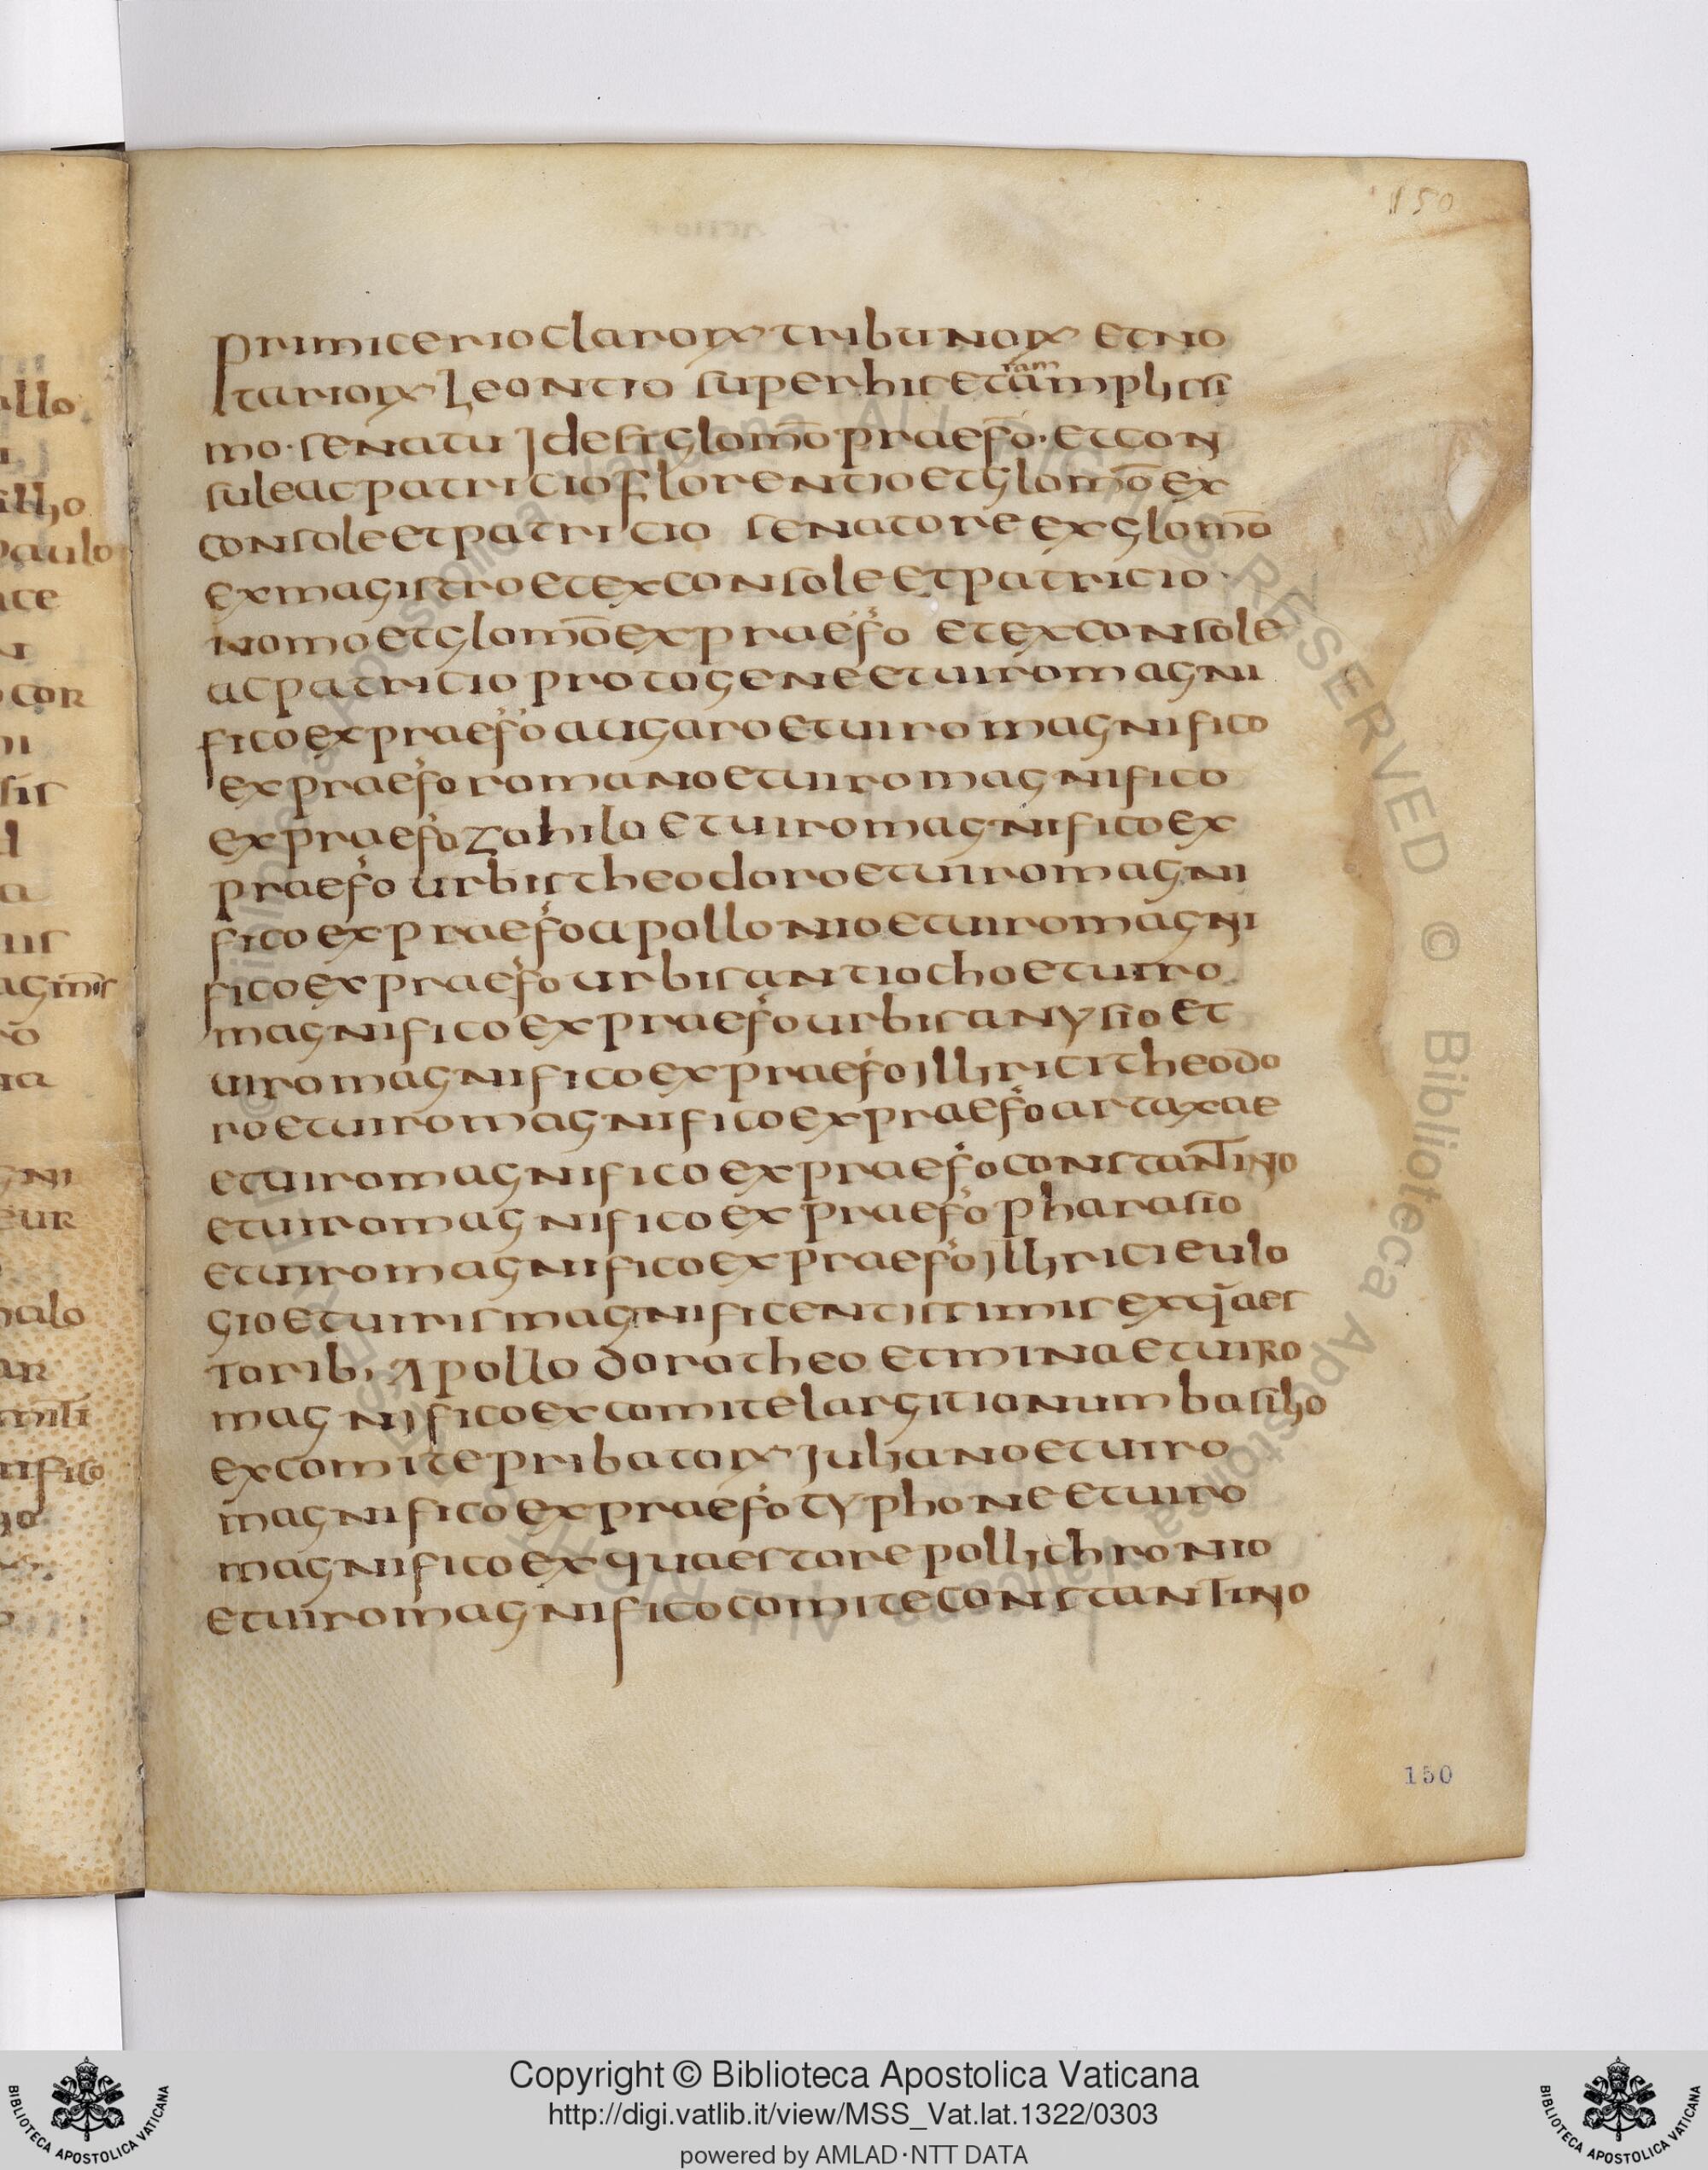 150
primicerio claroꝝ tribunoꝝ et no
tarioꝝ Leontio super his et ãmplissi
ram
mo · senatu Id est glom̄o praef̊o · et con
sule ac patricio florentio et glom̄o ex
console et patricio senatore ex glom̄o
ex magistro et ex console et patricio ·
nomo et glom̄o ex praef̊o et ex console
ac patricio protogene et uiro magni
fico ex praef̊o augaro et uiro magnifico
ex praef̊o romano et uiro magnifico
ex praef̊o zohilo et uiro magnifico ex
praef̊o urbis theodoro et uiro magni
fico ex praef̊o apollonio et uiro magni
fico ex praef̊o urbis antiocho et uiro
magnifico ex praef̊o urbis anysio et
uiro magnifico ex praef̊o Illirici theodo
ro et uiro magnifico ex praef̊o artaxae
et uiro magnifico ex praef̊o constantino
et uiro magnifico ex praef̊o pharasio
et uiro magnifico ex praef̊o Illirici eulo
gio et uiris magnificentissimis ex q̄aes
torib; Apollo dorotheo et mina et uiro
magnifico ex comite largitionum basilio
ex comite pribatoꝝ Iuliano et uiro
magnifico ex praef̊o typhone et uiro
magnifico ex quaestore pollichronio
et uiro magnifico comite constantino
150
Copyright © Biblioteca Apostolica Vaticana
http://digi.vatlib.it/view/MSS_Vat.lat.1322/0303
powered by AMLAD·NTT DATA
BIBLIOTECA APOSTOLICA VATICANA
BIBLIOTECA APOSTOLICA VATICANA